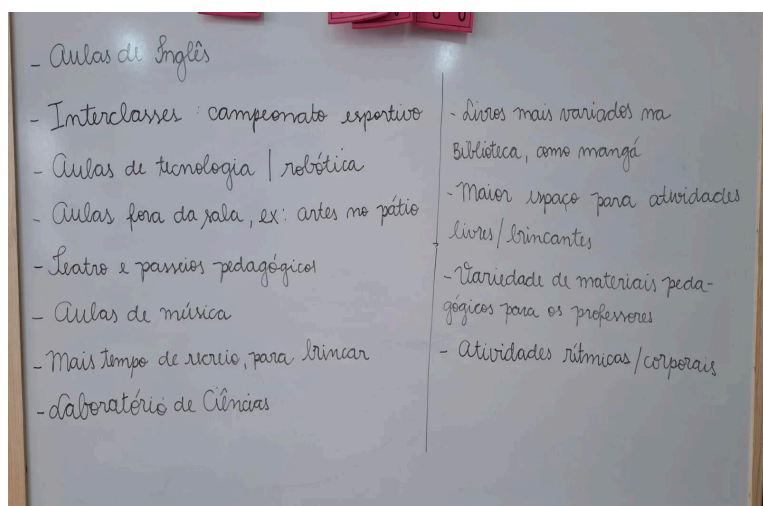 - Aulas de Inglês
- Interclasses : campeonato esportivo
- Aulas de tecnologia | robótica
- Aulas fora da sala, ex: artes no pátio
- Teatro e passeios pedagógicos
- Aulas de música
- Mais tempo de recreio, para brincar
- Laboratório de Ciências
- Livros mais variados na
Biblioteca, como mangá
- Maior espaço para atividades
livres/brincantes
- Variedade de materiais peda-
gógicos para os professores
- Atividades rítmicas/corporais